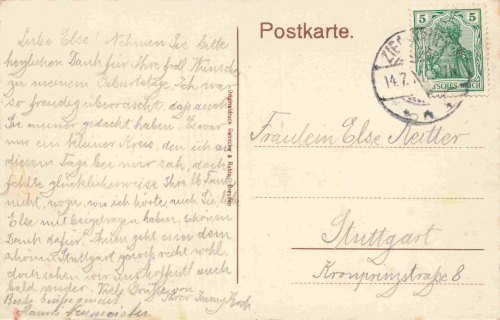 Liebe Else! Nehmen Sie bitte
herzlichen Dank für Ihre frdl. Wünsche
zu meinem Geburtstage. Ich war
so freudig überrascht, daß auch
Sie meiner gedacht haben. Es war
nur ein kleiner Kreis, den ich an
diesem Tage bei mir sah, doch
fehlte glücklicherweise Ihre lb. Tante
nicht, wozu, wie ich hörte auch Sie lb.
Else mit beigetragen haben, schönen
Dank dafür! Ihnen geht es in dem
schönen Stuttgart gewiß recht wohl,
doch sehen wir uns hoffentl. auch
bald wieder. Viele Grüße von
Ihrer
Postkarte.
5 5
DEUTSCHES REICH
14.7.
Fräulein Else Reitter
Stuttgart
Kronprinzstraße 8.